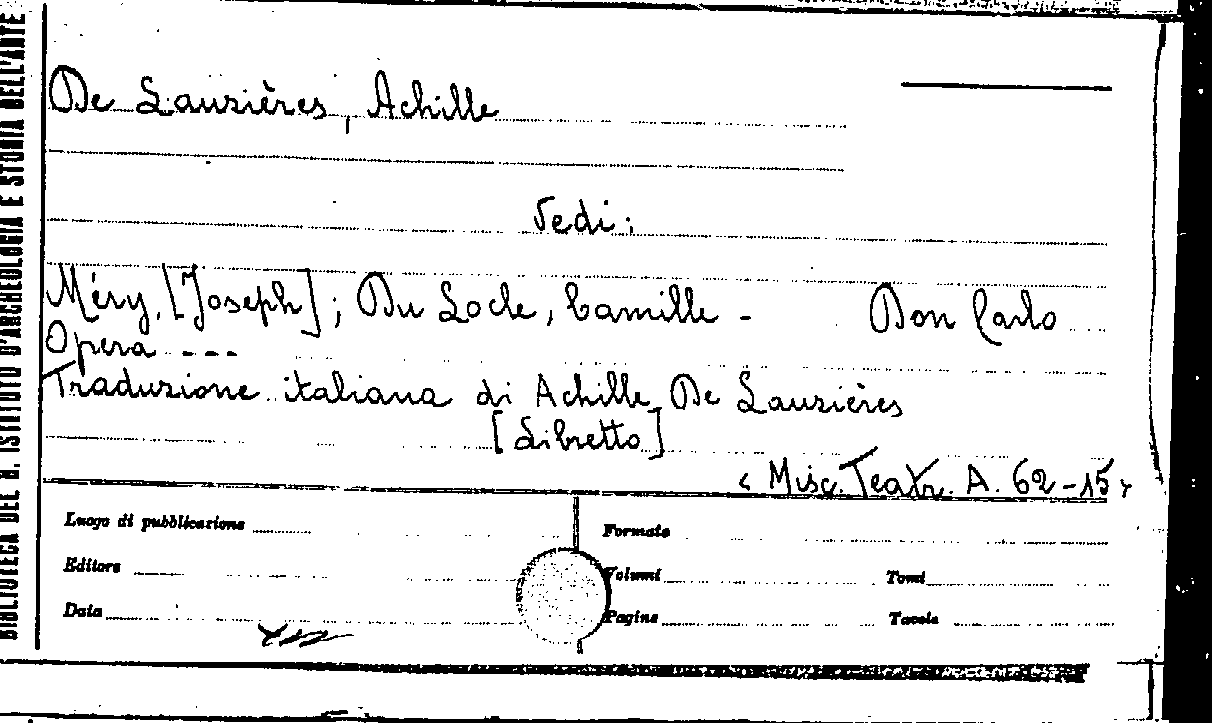 BIBLIOTECA DEL R. ISTITUTO D'ARCHEOLOGIA E STORIA DELL'ARTE
De Lauzières, Achille
Vedi:
Méry, [Joseph]; Du Locle, Camille - Don Carlo
Opera ---
Traduzione italiana di Achille De Lauzières
[Libretto]
« Misc. Teatr. A. 62-15»
Luogo di pubblicazione
Formato
Editore
Volumi
Tomi
Data
Pagine
Tavole